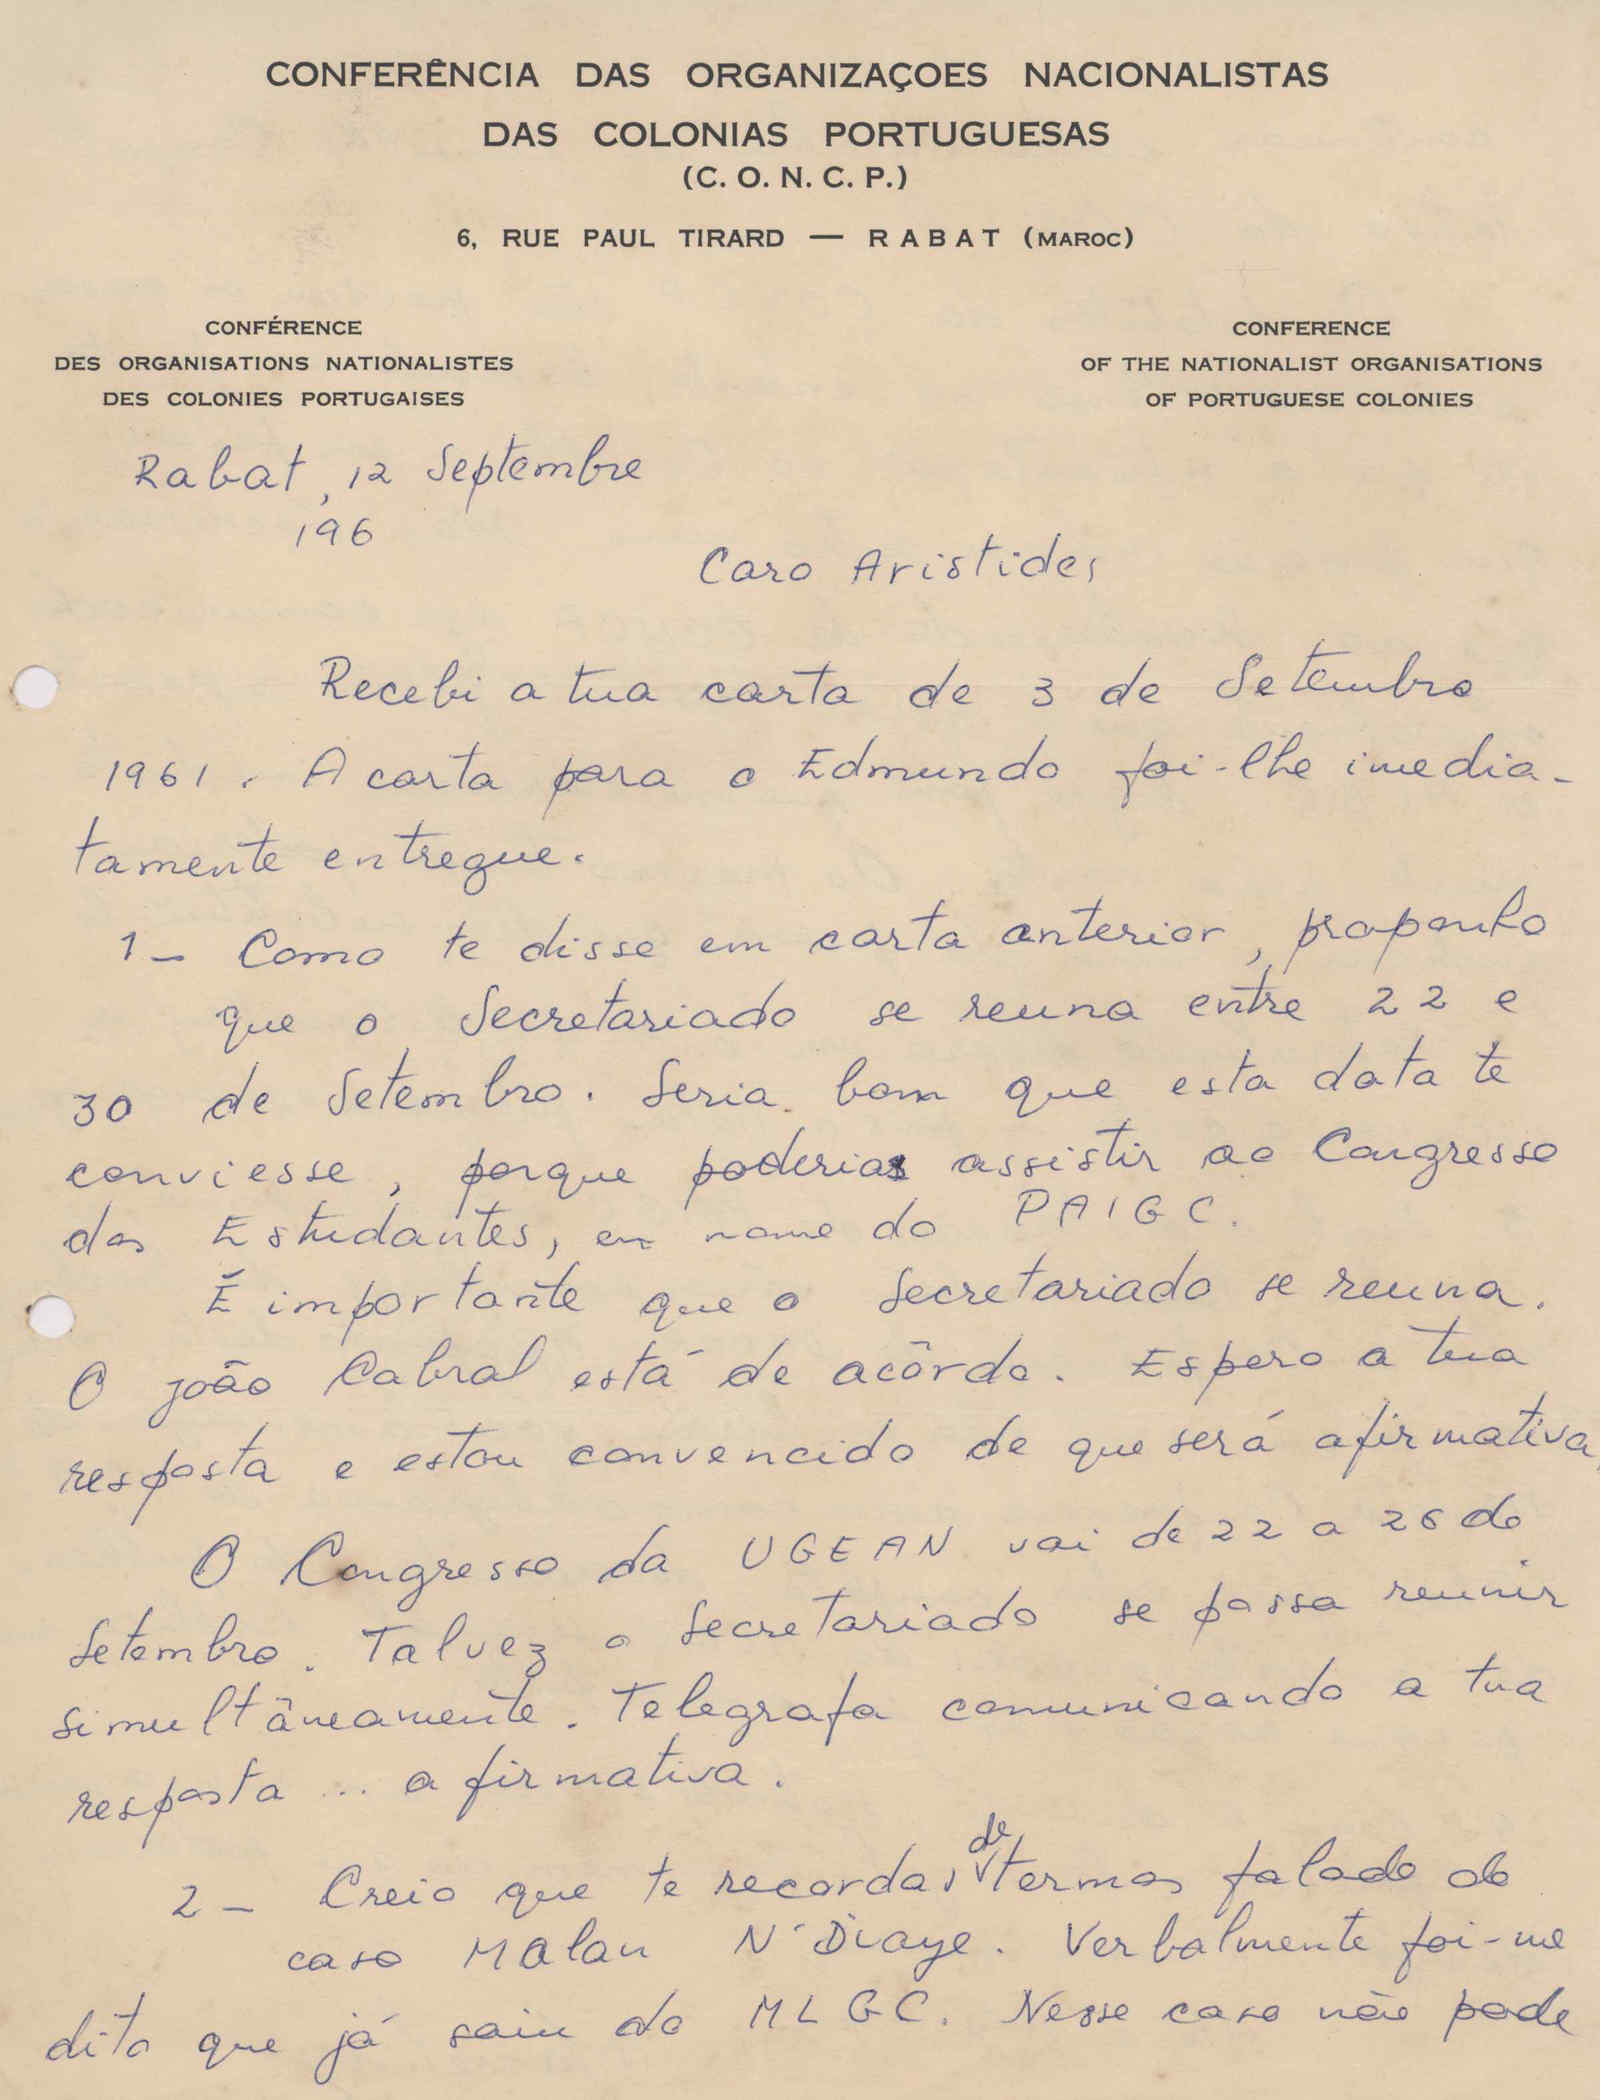 CONFERÊNCIA DAS ORGANIZAÇOES NACIONALISTAS
DAS COLONIAS PORTUGUESAS
(C. O. N. C. P.)
6, RUE PAUL TIRARD — RABAT (MAROC)
CONFÉRENCE
DES ORGANISATIONS NATIONALISTES
DES COLONIES PORTUGAISES
CONFERENCE
OF THE NATIONALIST ORGANISATIONS
OF PORTUGUESE COLONIES
Rabat, 12 Septembre
196
Caro Aristides
Recebi a tua carta de 3 de Setembro
1961. A carta para o Edmundo foi-lhe imedia-
tamente entregue.
1- Como te disse em carta anterior, proponho
que o Secretariado se reuna entre 22 e
30 de Setembro. Seria bom que esta data te
conviesse, porque poderias assistir ao Congresso
dos Estudantes, em nome do PAIGC.
É importante que o Secretariado se reuna.
O João Cabral está de acôrdo. Espero a tua
resposta e estou convencido de que será afirmativa.
O Congresso da UGEAN vai de 22 a 26 de
Setembro. Talvez o Secretariado se possa reunir
simultâneamente. Telegrafa comunicando a tua
resposta ... afirmativa.
2- Creio que te recordas de termos falado do
caso Malan N'Diaye. Verbalmente foi-me
dito que já saiu do MLGC. Nesse caso não pode